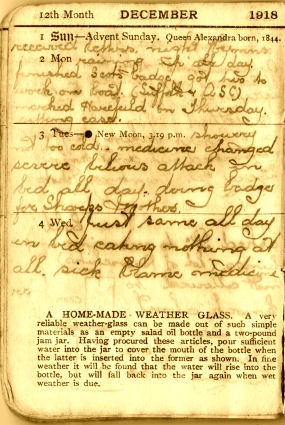 12th Month DECEMBER 1918
1 Sun—Advent Sunday. Queen Alexandra born, 1844.
received letters. night hymns
2 Mon raining all day
finished Scots badge, got two to
work on
marked Harefield on Thursday.
3 Tues—● New Moon, 3.19 p.m. showery
not too cold. medicine changed
severe bilious attack in
bed all day. doing badge
for
4 Wed just same all day
in bed eating nothing at
all. sick blame medicine
A HOME-MADE WEATHER GLASS. A very
reliable weather-glass can be made out of such simple
materials as an empty salad oil bottle and a two-pound
jam jar. Having procured these articles, pour sufficient
water into the jar to cover the mouth of the bottle when
the latter is inserted into the former as shown. In fine
weather it will be found that the water will rise into the
bottle, but will fall back into the jar again when wet
weather is due.